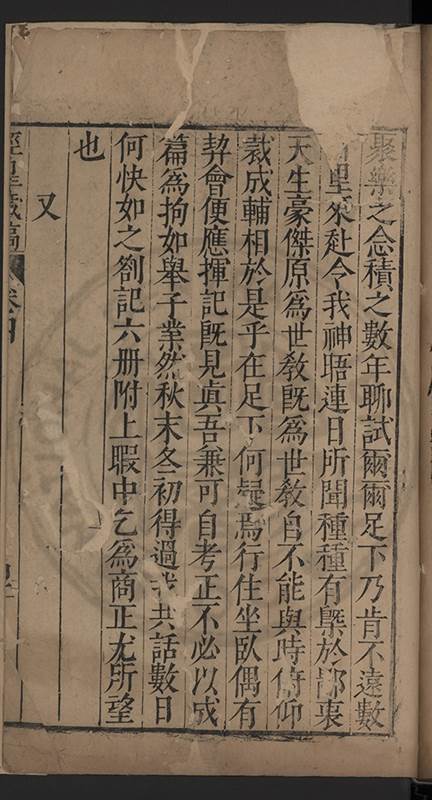 聚樂之念積之數年聊試爾爾足下乃肯不遠數
里來赴令我神晤連日所聞種種有槩於鄙衷
天生豪傑原為世敎旣為世敎自不能與時俯仰
裁成輔相於是乎在足下何疑焉行住坐臥偶有
契會便應揮記旣見眞吾兼可自考正不必以成
篇為拘如舉子業然秋末冬初得過我共話數日
何快如之劄記六册附上暇中乞為商正尤所望
也
又
涇臯藏稿
卷四